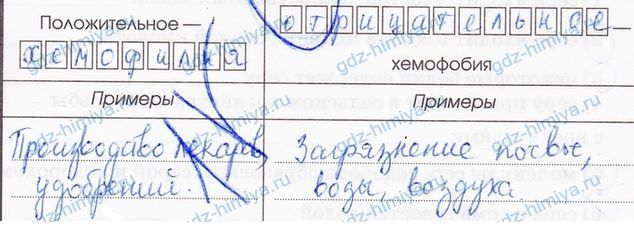 Положительное —
отрицательное —
хемофилия
хемофобия
Примеры
Примеры
Производство лекарств
удобрений.
Загрязнение почвы,
воды, воздуха.
gdz-himiya.ru